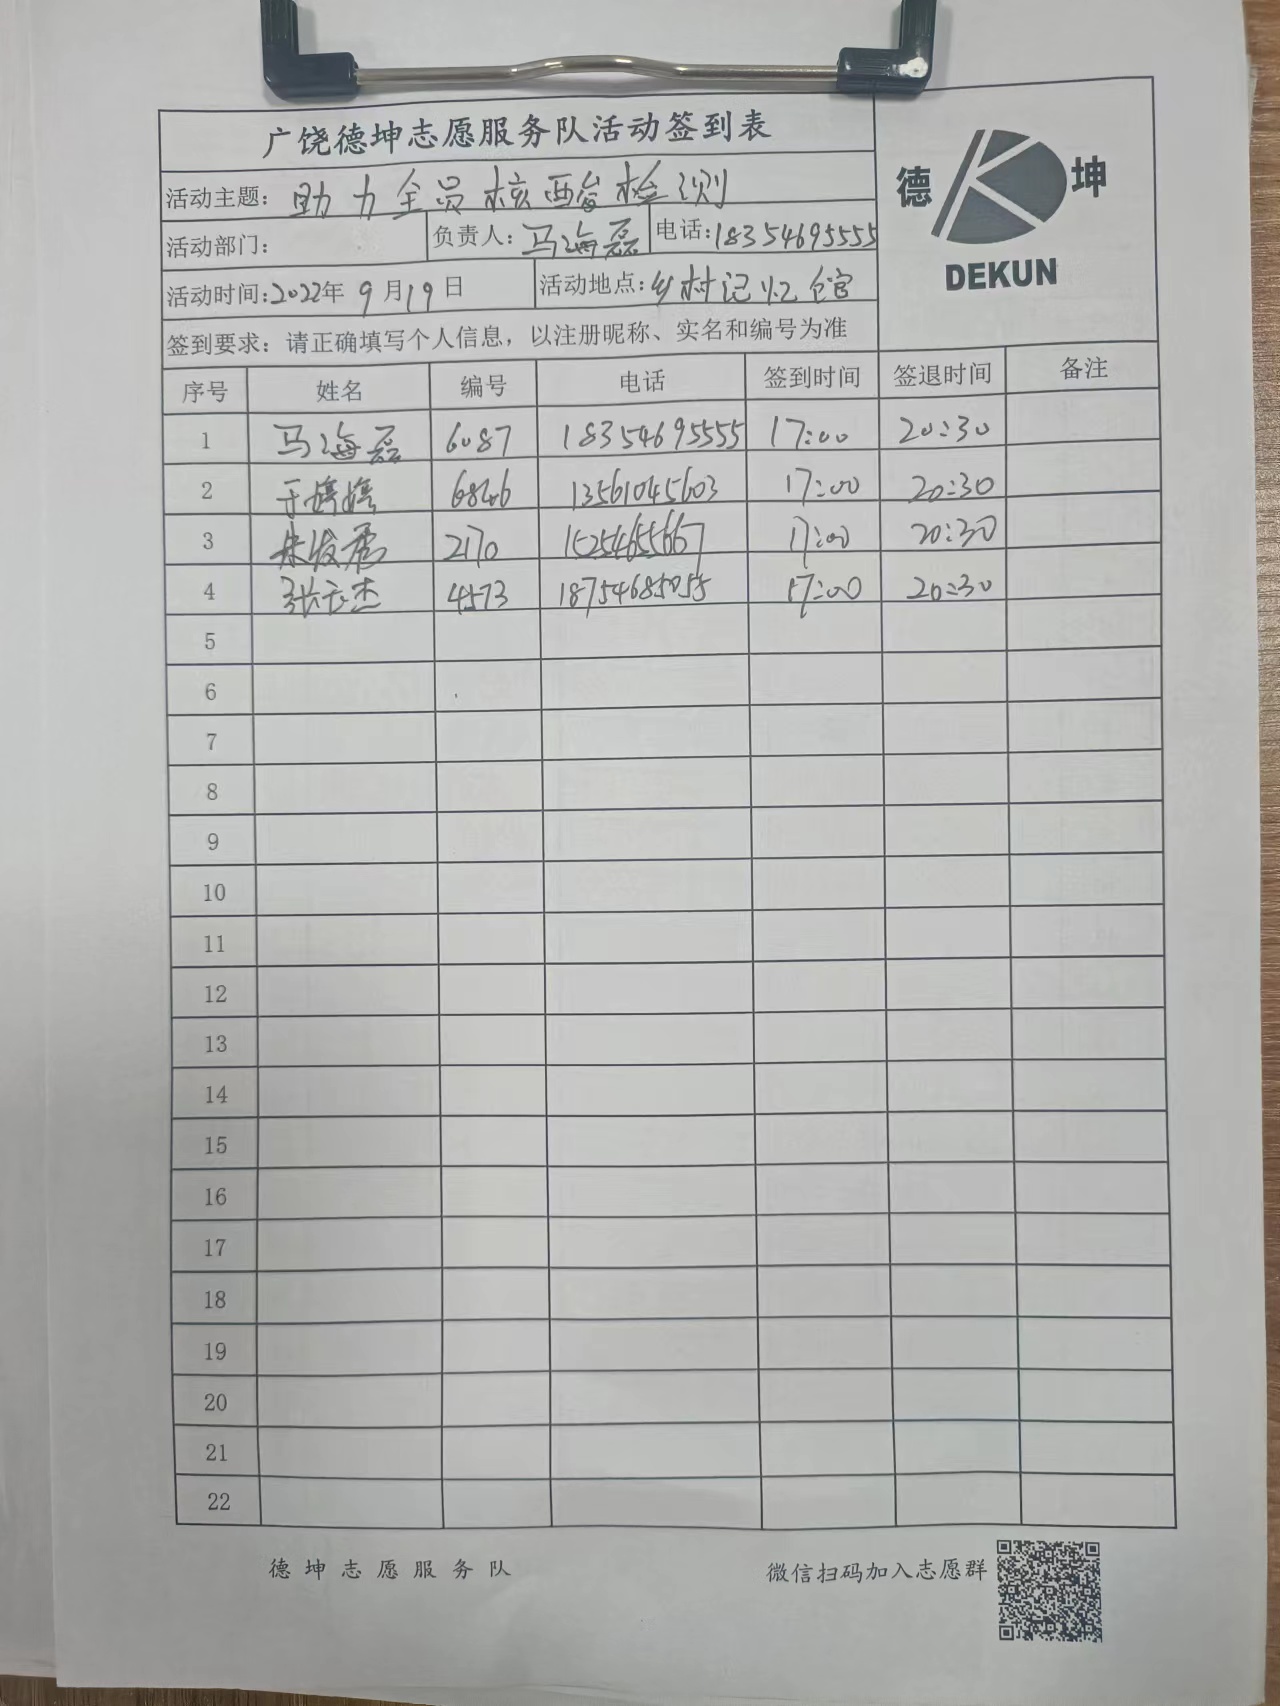 广饶德坤志愿服务队活动签到表
德 坤
DEKUN
活动主题: 助力全员核酸检测
活动部门: 负责人: 马海磊 电话: 18354695555
活动时间: 2022年 9月19日 活动地点: 乡村记忆馆
签到要求: 请正确填写个人信息, 以注册昵称、实名和编号为准
序号 姓名 编号 电话 签到时间 签退时间 备注
1 马海磊 6087 18354695555 17:00 20:30
2 13561045603 17:00 20:30
3 2170 15254655667 17:00 20:30
4 4573 18754685055 17:00 20:30
5
6
7
8
9
10
11
12
13
14
15
16
17
18
19
20
21
22
德坤志愿服务队 微信扫码加入志愿群